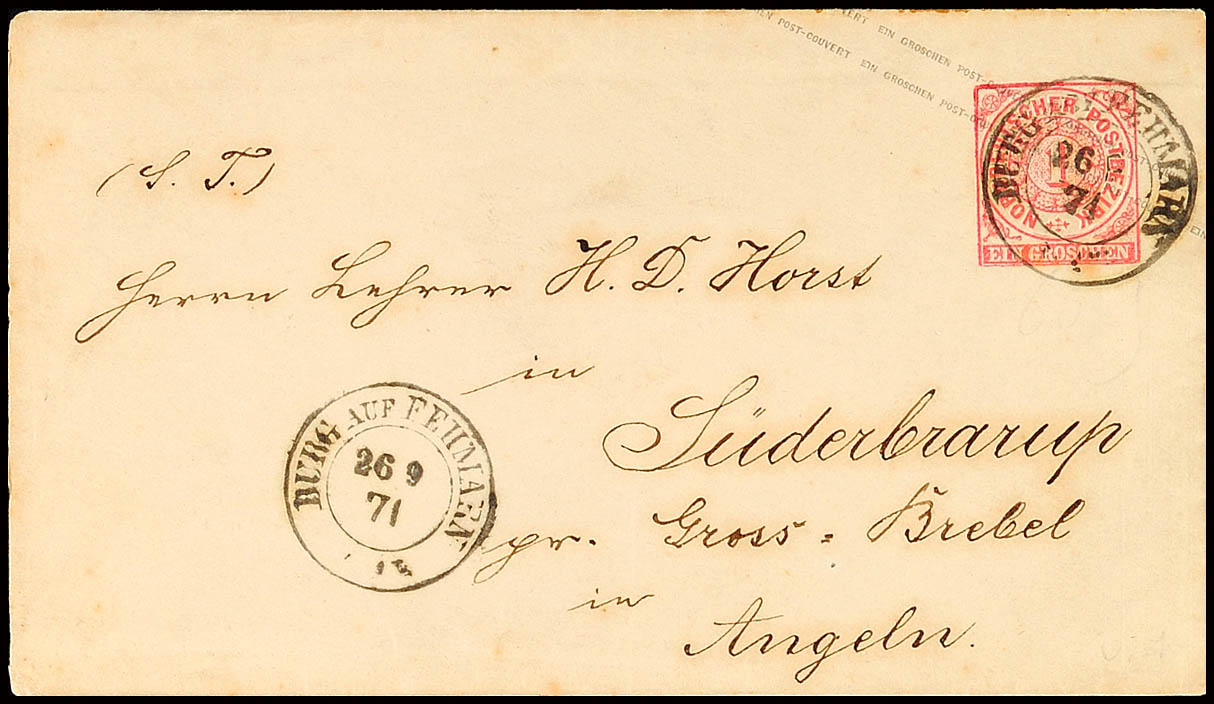 POST-COUVERT EIN GROSCHEN POST-COUVERT
POST-COUVERT EIN GROSCHEN POST-COUVERT
NORDDEUTSCHER POSTBEZIRK
1
EIN GROSCHEN
BURG AUF FEHMARN
26
71
(S. T.)
Herrn Lehrer H. D. Horst
in
Süderbrarup
BURG AUF FEHMARN
26 9
71
pr. Gross=Brebel
in
Angeln.